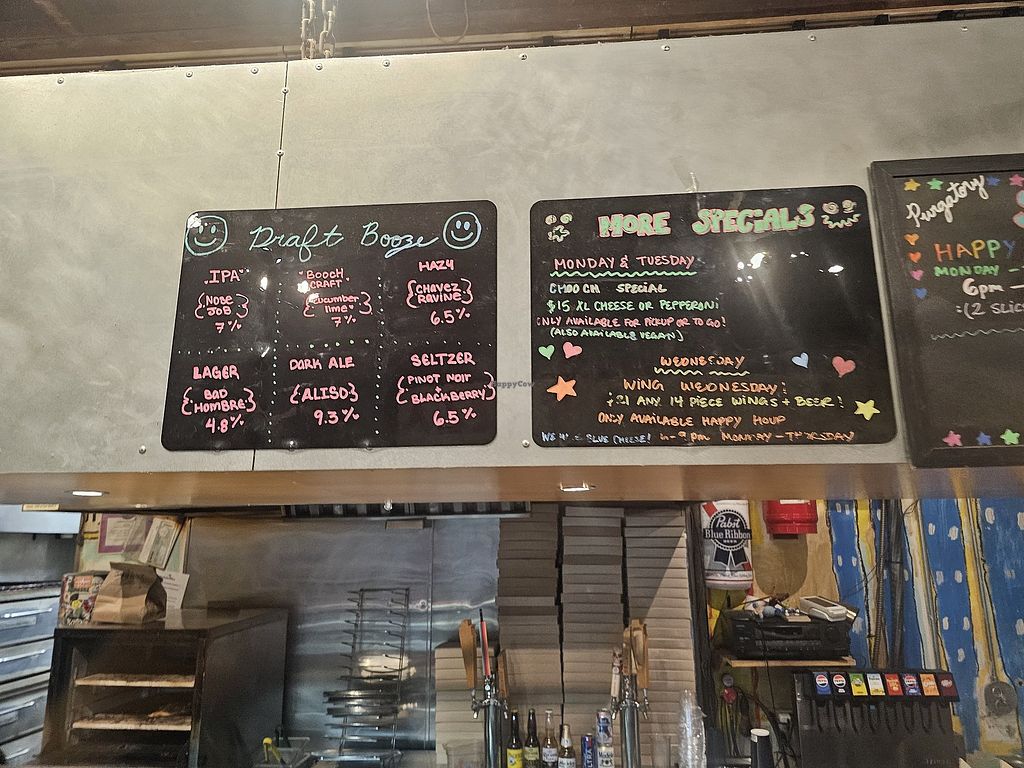 Draft Booze
IPA
{NOSE JOB}
7%
BOOCH
CRAFT
{Cucumber
lime}
7%
HAZY
{CHAVEZ
RAVINE}
6.5%
LAGER
{BAD
HOMBRE}
4.8%
DARK ALE
{ALISO}
9.3%
SELTZER
{PINOT NOIR
BLACKBERRY}
6.5%
MORE SPECIALS
MONDAY & TUESDAY
CHOOCH SPECIAL
$15 XL CHEESE OR PEPPERONI
ONLY AVAILABLE FOR PICKUP OR TO GO!
(ALSO AVAILABLE VEGAN)
WEDNESDAY
WING WEDNESDAY!
ANY 14 PIECE WINGS + BEER!
ONLY AVAILABLE HAPPY HOUR
BLUE CHEESE! 6-9pm MONDAY-THURSDAY
Purgatory
HAPPY
MONDAY -
6pm -
(2 SLIC
HappyCow
Pabst
Blue Ribbon